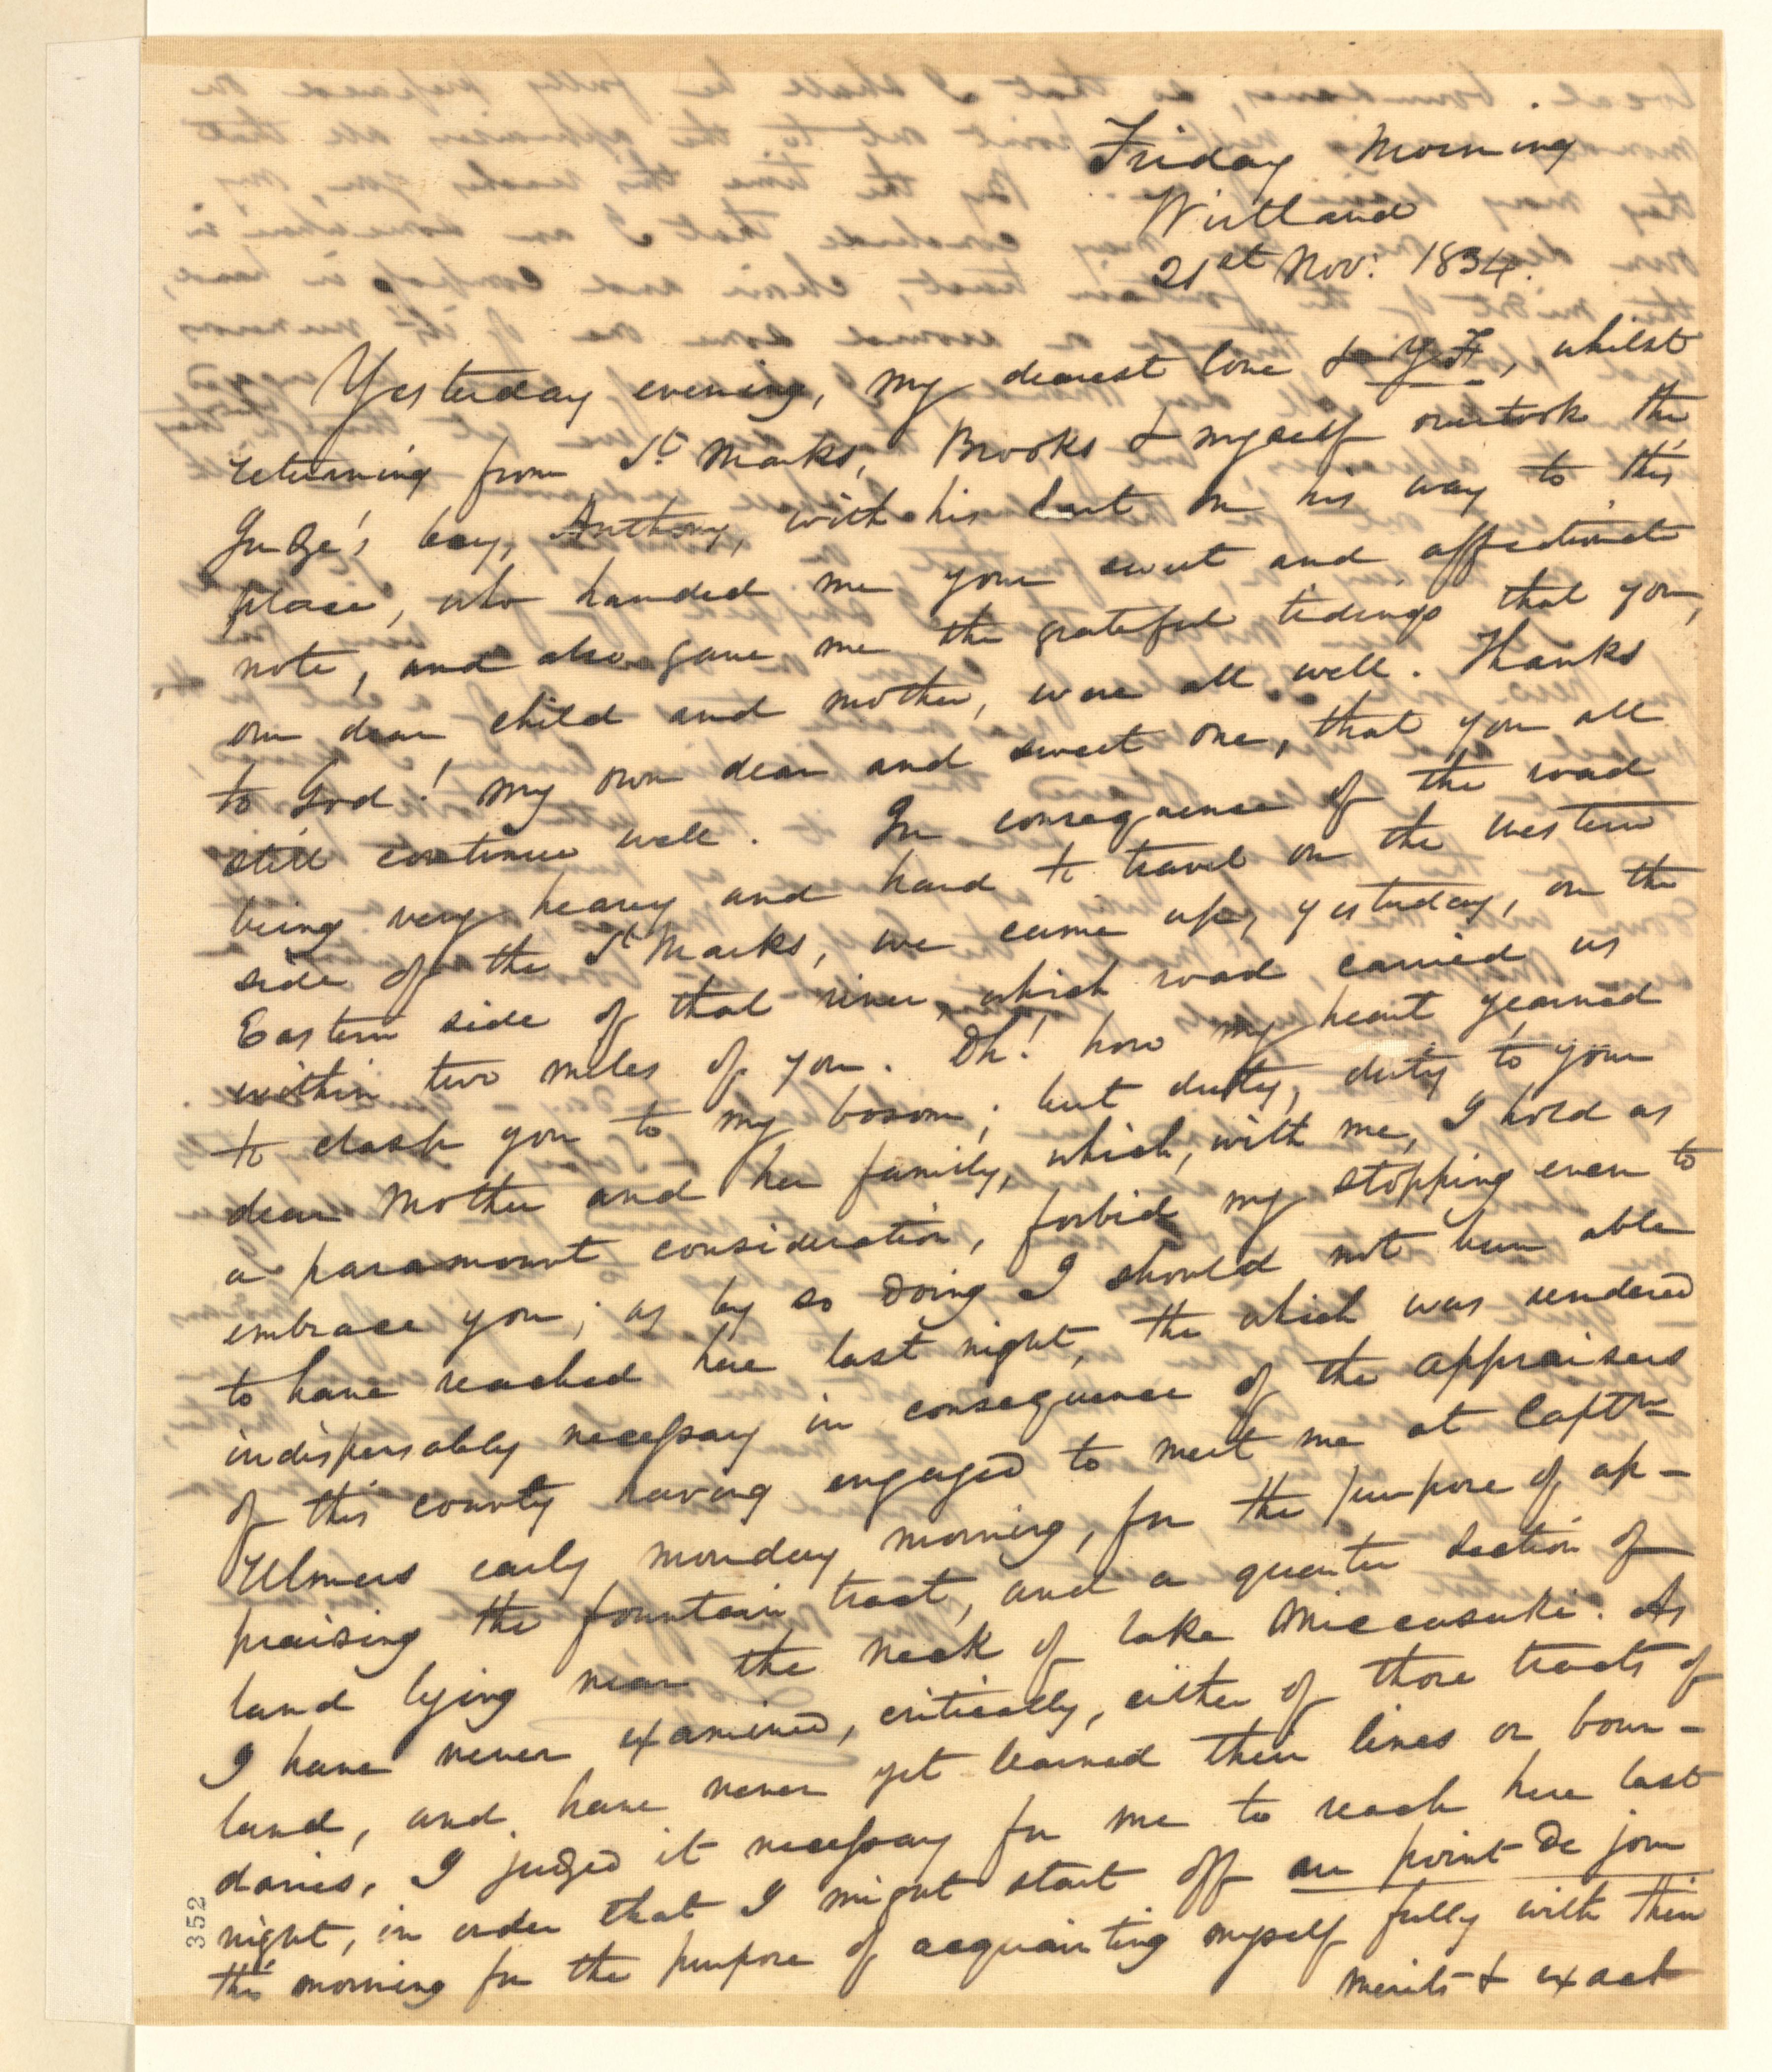 Friday Morning
Wirtland
21st Nov: 1834.
Yesterday evening, my dearest love & Y. F., whilst
returning from St Marks, Brooks & myself overtook the
Judge's boy, Anthony, with his cart on his way to this
place, who handed me your sweet and affectionate
note, and also gave me the grateful tidings that you,
our dear child and mother, were all well. Thanks
to God! my own dear and sweet one, that you all
still continue well. In consequence of the road
being very heavy and hard to travel on the western
side of the St Marks, we came up, yesterday, on the
Eastern side of that river, which road carried us
within two miles of you. Oh! how my heart yearned
to clasp you to my bosom; but duty, duty to your
dear Mother and her family, which, with me, I hold as
a paramount consideration, forbid my stopping even to
embrace you; as by so doing I should not been able
to have reached here last night, the which was rendered
indispensably necessary in consequence of the appraisers
of this county having engaged to meet me at Captn
Ulmers early monday morning, for the purpose of ap-
praising the fountain tract, and a quarter section of
land lying near the neck of lake Miccasuki. As
I have never examined, critically, either of those tracts of
land, and have never yet learned their lines or boun-
daries, I judged it necessary for me to reach here last
night, in order that I might start off au point de jour
this morning for the purpose of acquainting myself fully with their
merits & exact
352